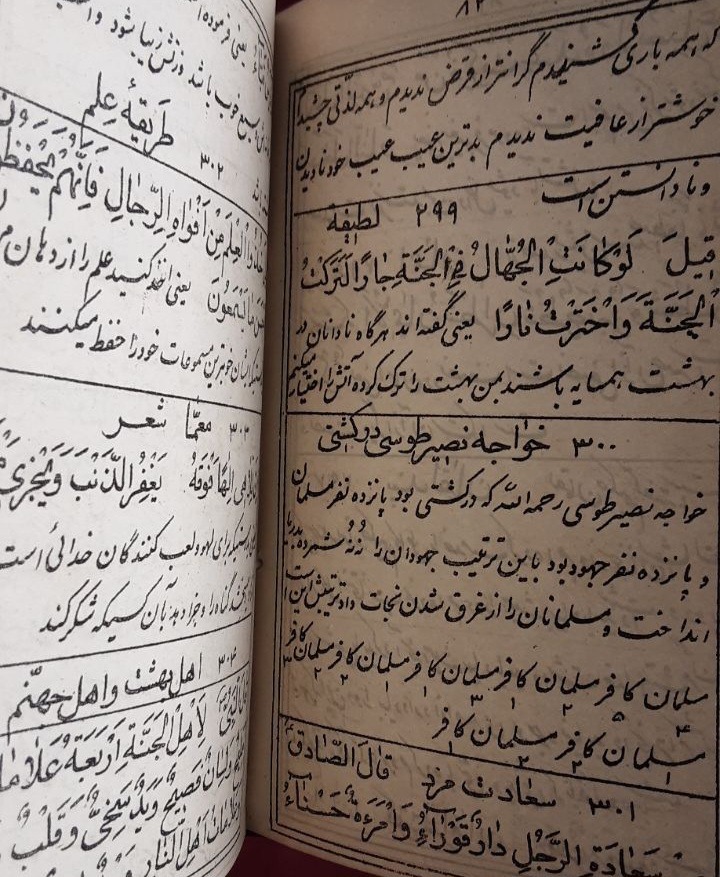 ۸۲
که همه باری کشیدم گرانتر از قرض ندیدم و همه لذتی چشیدم
خوشتر از عافیت ندیدم بدترین عیب عیب خود نادیدن
و نادانستن است
۲۹۹ لطیفة
قیلَ لَوْ کانَتِ الْجُهّالُ فِی الْجَنَّةِ جارًا لَتَرَکْتُ
الْجَنَّةَ وَاخْتَرْتُ نارًا یعنی گفته‌اند هرگاه نادانان در
بهشت همسایه باشند بمن بهشت را ترک کرده آتش را اختیار میکنم
۳۰۰ خواجه نصیر طوسی در کشتی
خواجه نصیر طوسی رحمه الله که در کشتی بود پانزده نفر مسلمان
و پانزده نفر جهود بود باین ترتیب جهودان را نُه نُه شمرده بدریا
انداخت و مسلمانان را از غرق شدن نجات داد ترتیبش این است
مسلمان کافر مسلمان کافر مسلمان کافر مسلمان کافر مسلمان کافر
۴ ۵ ۲ ۱ ۳ ۱ ۱ ۲ ۲ ۳
مسلمان کافر مسلمان کافر
۱ ۲ ۲ ۱
۳۰۱ سعادت مرد قالَ الصّادق
سَعادَةِ الرَّجُلِ دارٌ قَوْراءُ وَامْرَءَةٌ حَسْناءُ
یعنی فرموده
خوب باشد و زنش زیبا شود
۳۰۲ طریقهٔ علم
الْعِلْمَ مِنْ اَفْواهِ الرِّجالِ فَاِنَّهُمْ
یعنی اخذ کنید علم را از دهان
خوبترین مسموعات خود را حفظ میکنند
۳۰۳ معمّا شعر
یَغْفِرُ الذَّنْبَ وَیَجْزی
لهو و لعب کنندگان خدائی است
گناه را و جزا دهد بآن کسیکه شکر کند
۳۰۴ اهل بهشت و اهل جهنّم
لِاَهْلِ الْجَنَّةِ اَرْبَعَةُ
وَلِسانٌ فَصیحٌ وَیَدٌ سَخِیٌّ وَقَلْبٌ
اَهْلِ النّارِ